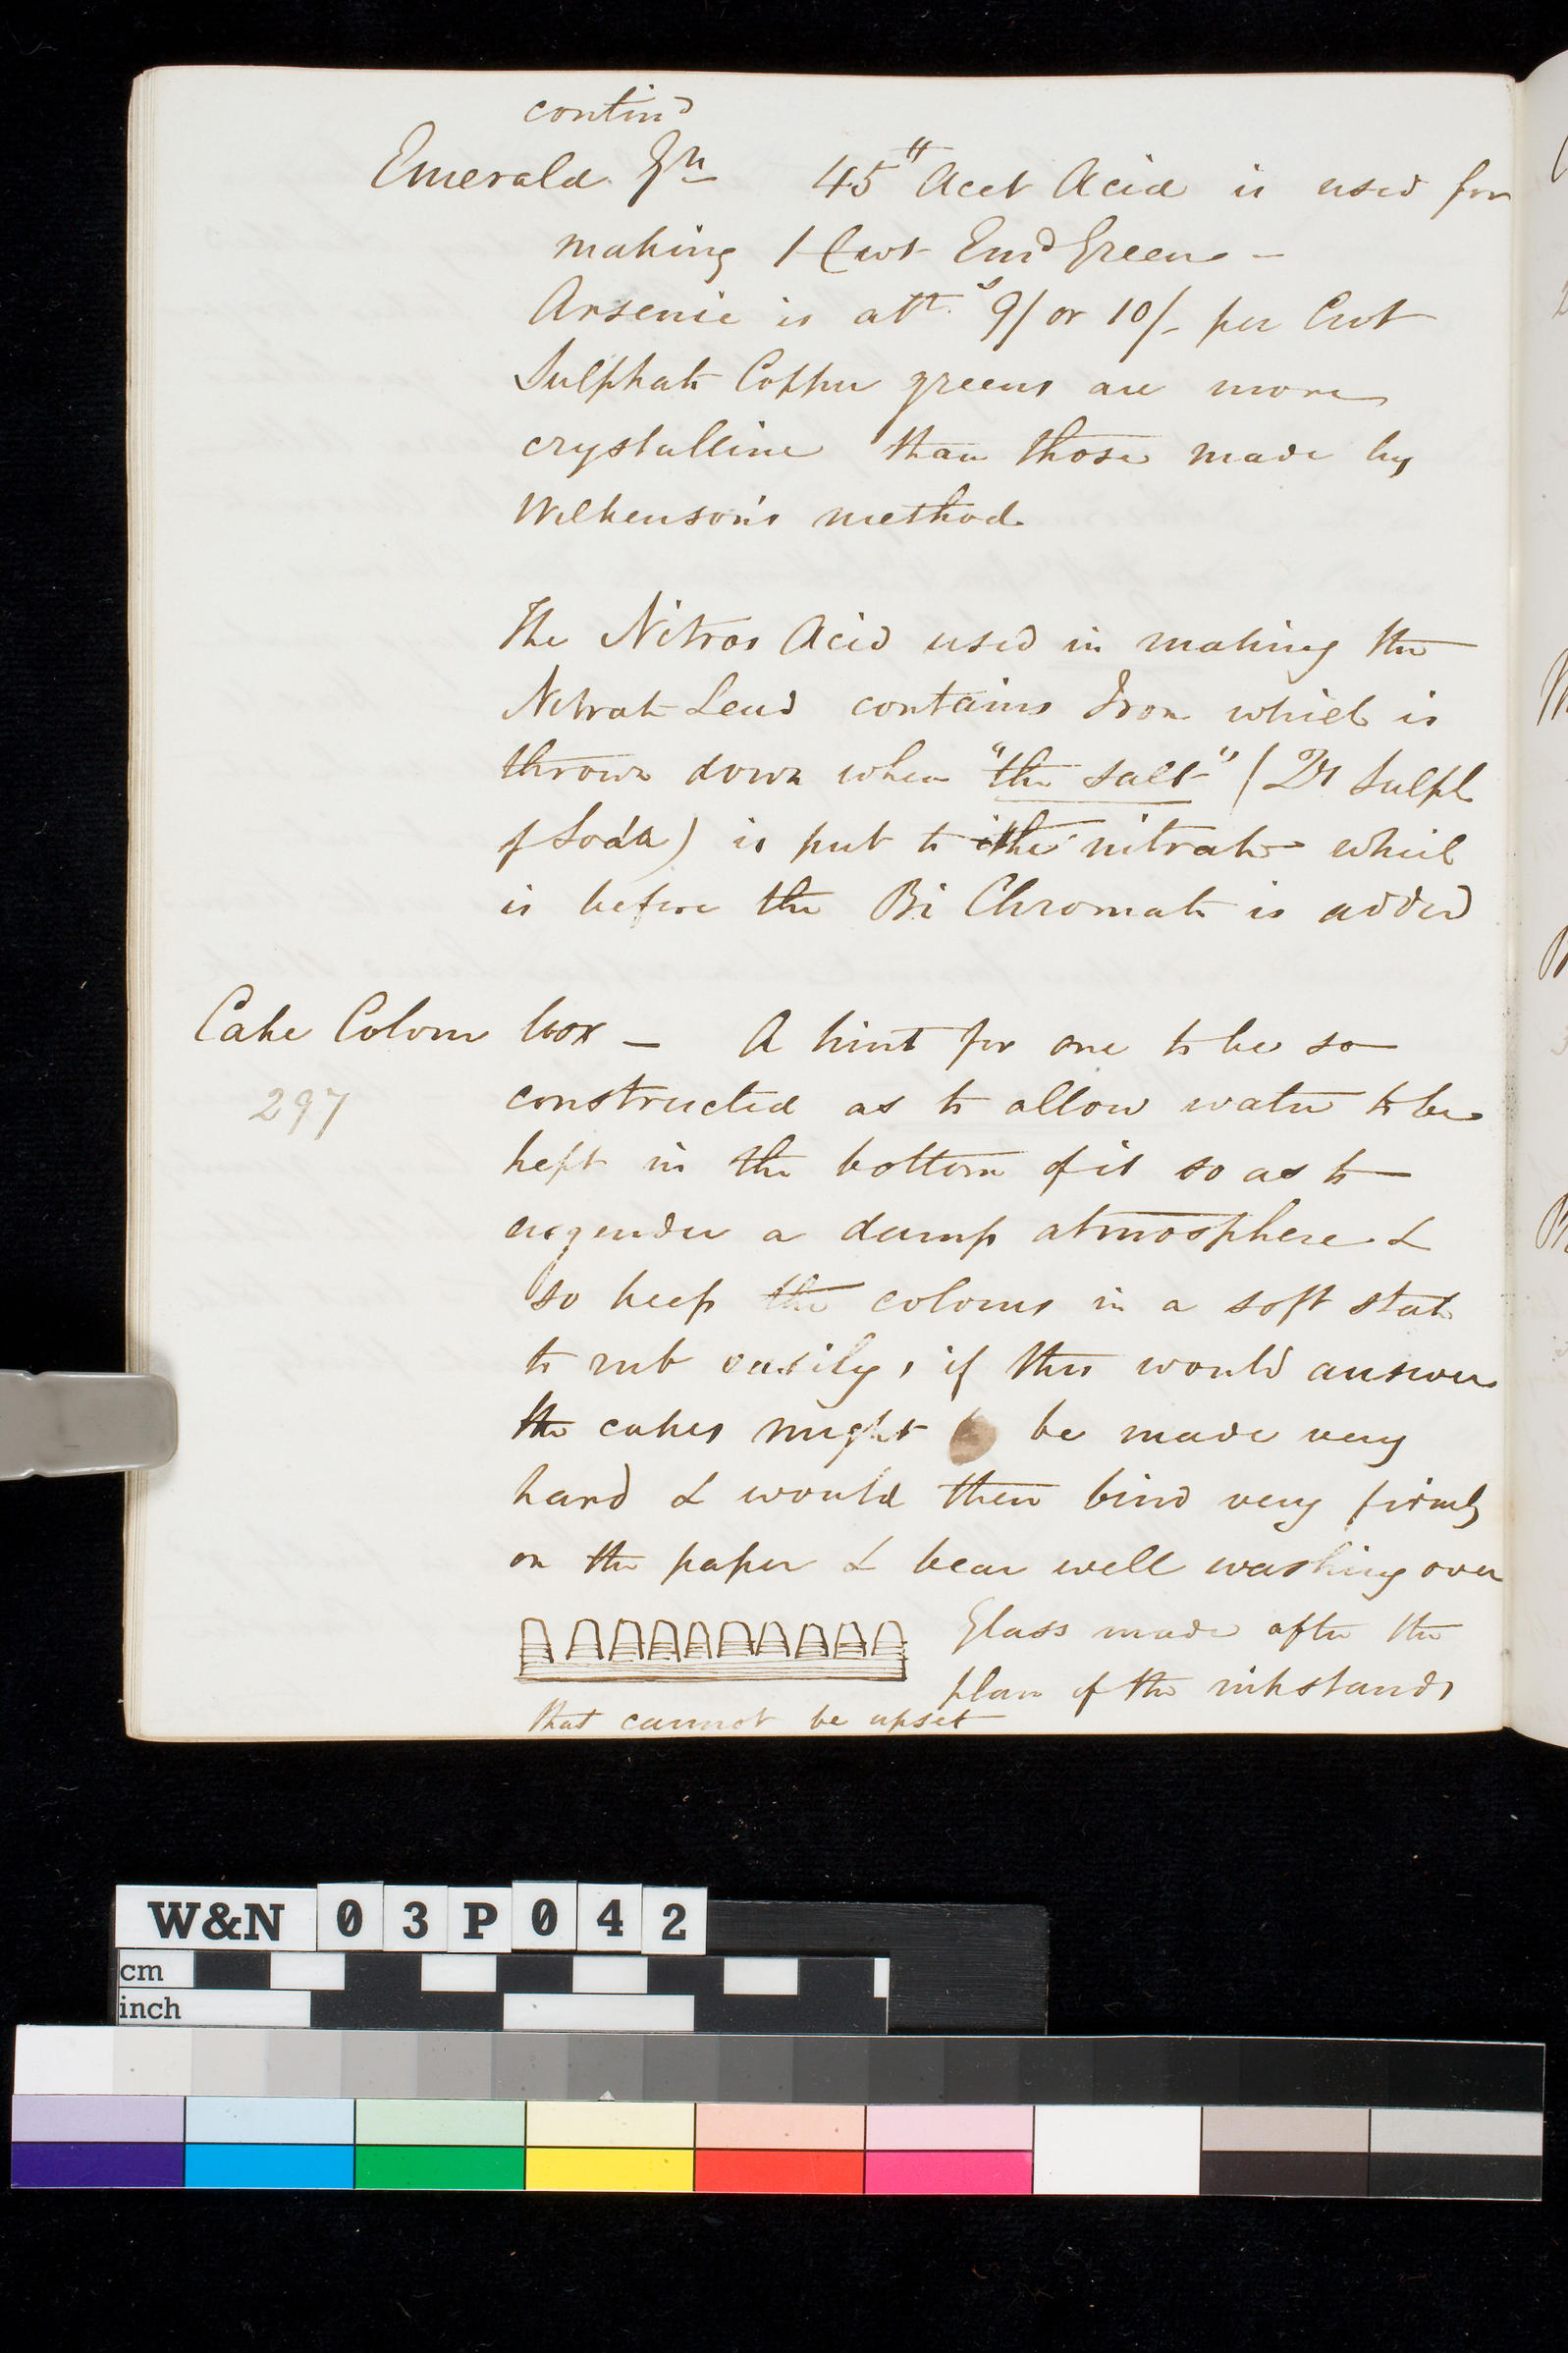 contind
Emerald Grn 45 lb Acet Acid is used for
making 1 Cwt Emd Green –
Arsenic is abt s 9/ or 10/- per Cwt
Sulphate Copper greens are more
crystalline than those made by
Wilkenson's method
The Nitros Acid used in making the
Nitrate Lead contains Iron which is
thrown down when "the salt" (Dr Sulph
of Soda) is put to the nitrate which
is before the Bi Chromate is added
Cake Colour box – A hint for one to be so
297 constructed as to allow water to be
kept in the bottom of it so as to
engender a damp atmosphere &
so keep the colours in a soft state
to rub easily, if this would answer
the cakes might be made very
hard & would then bind very firmly
on the paper & bear well washing over
Glass made after the
plan of the inkstands
that cannot be upset
W&N 03P042
cm
inch